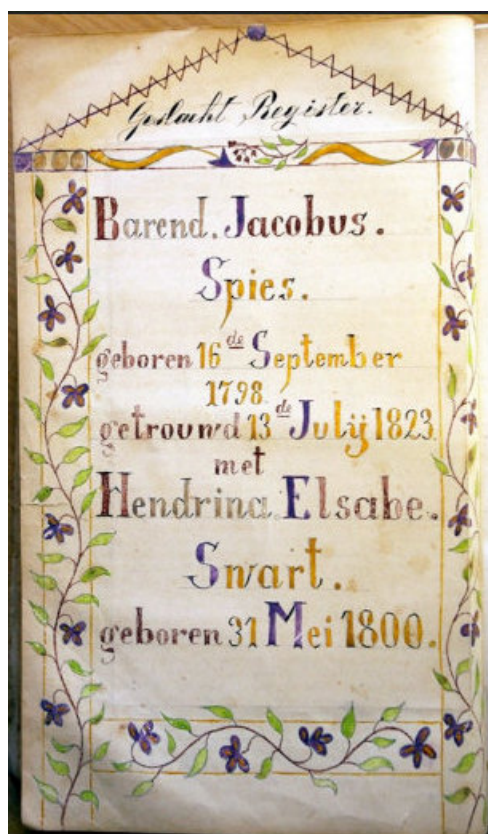 Geslacht Register.
Barend. Jacobus.
Spies.
geboren 16de September
1798.
getrouwd 13de Julij 1823
met
Hendrina Elsabe.
Swart.
geboren 31 Mei 1800.